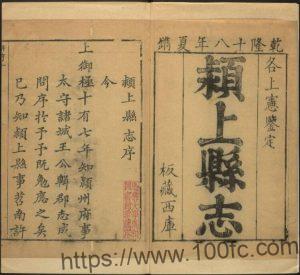 乾隆十八年夏鐫
各上憲鑒定
潁上縣志
板藏西庫
潁上縣志序
今
上御極十有七年知潁州府事
太守諸城王公輯郡志成
問序於予予既勉應之矣
已乃知潁上縣事荅南許
https://www.100fc.com